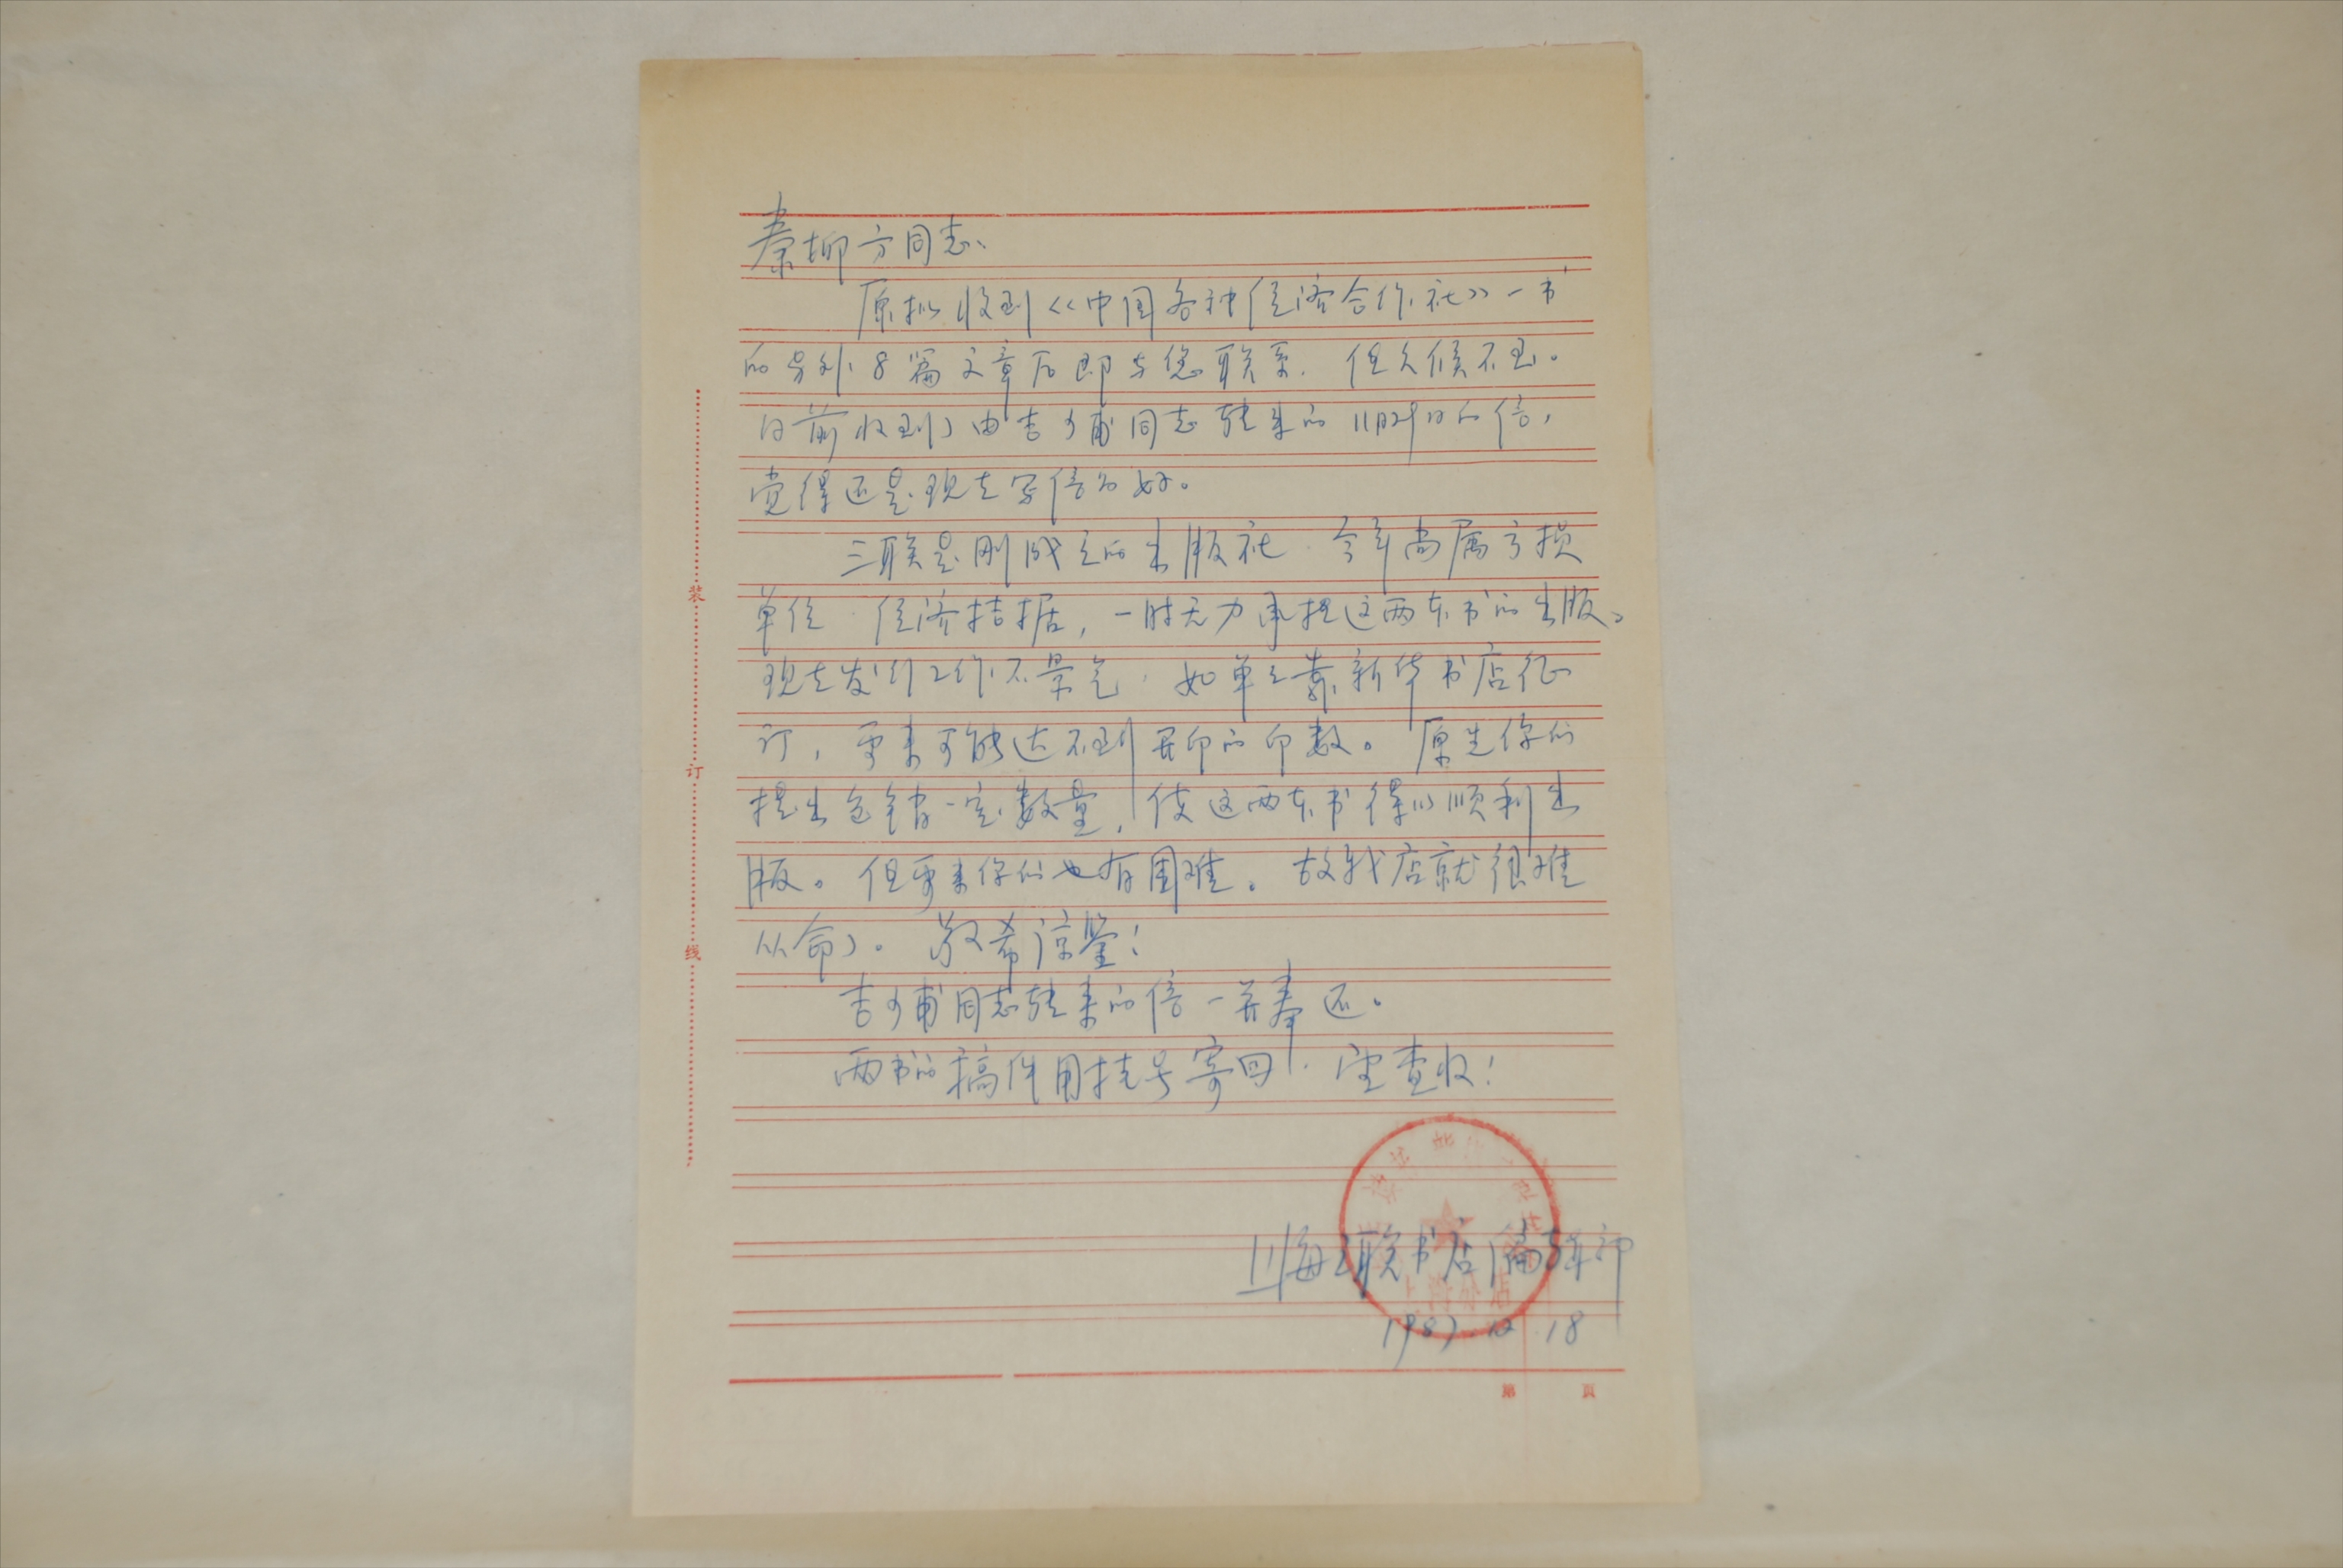 秦柳方同志、
原拟收到《中国各种经济合作社》一书
的另外8篇文章后即与您联系.但久候不至。
日前收到由吉少甫同志转来的11月29日的信,
觉得还是现在写信为好。
三联是刚成立的出版社.今年尚属亏损
单位.经济拮据,一时无力承担这两本书的出版。
现在发行工作不景气,如单单靠新华书店征
订,看来可能达不到开印的印数。原先你们
提出包销一定数量,使这两本书得以顺利出
版。但看来你们也有困难。故我店就很难
从命了。敬希谅鉴!
吉少甫同志转来的信一并奉还。
两书的稿件用挂号寄回.望查收!
上海三联书店编辑部
1987.12.18
装
订
线
第 页